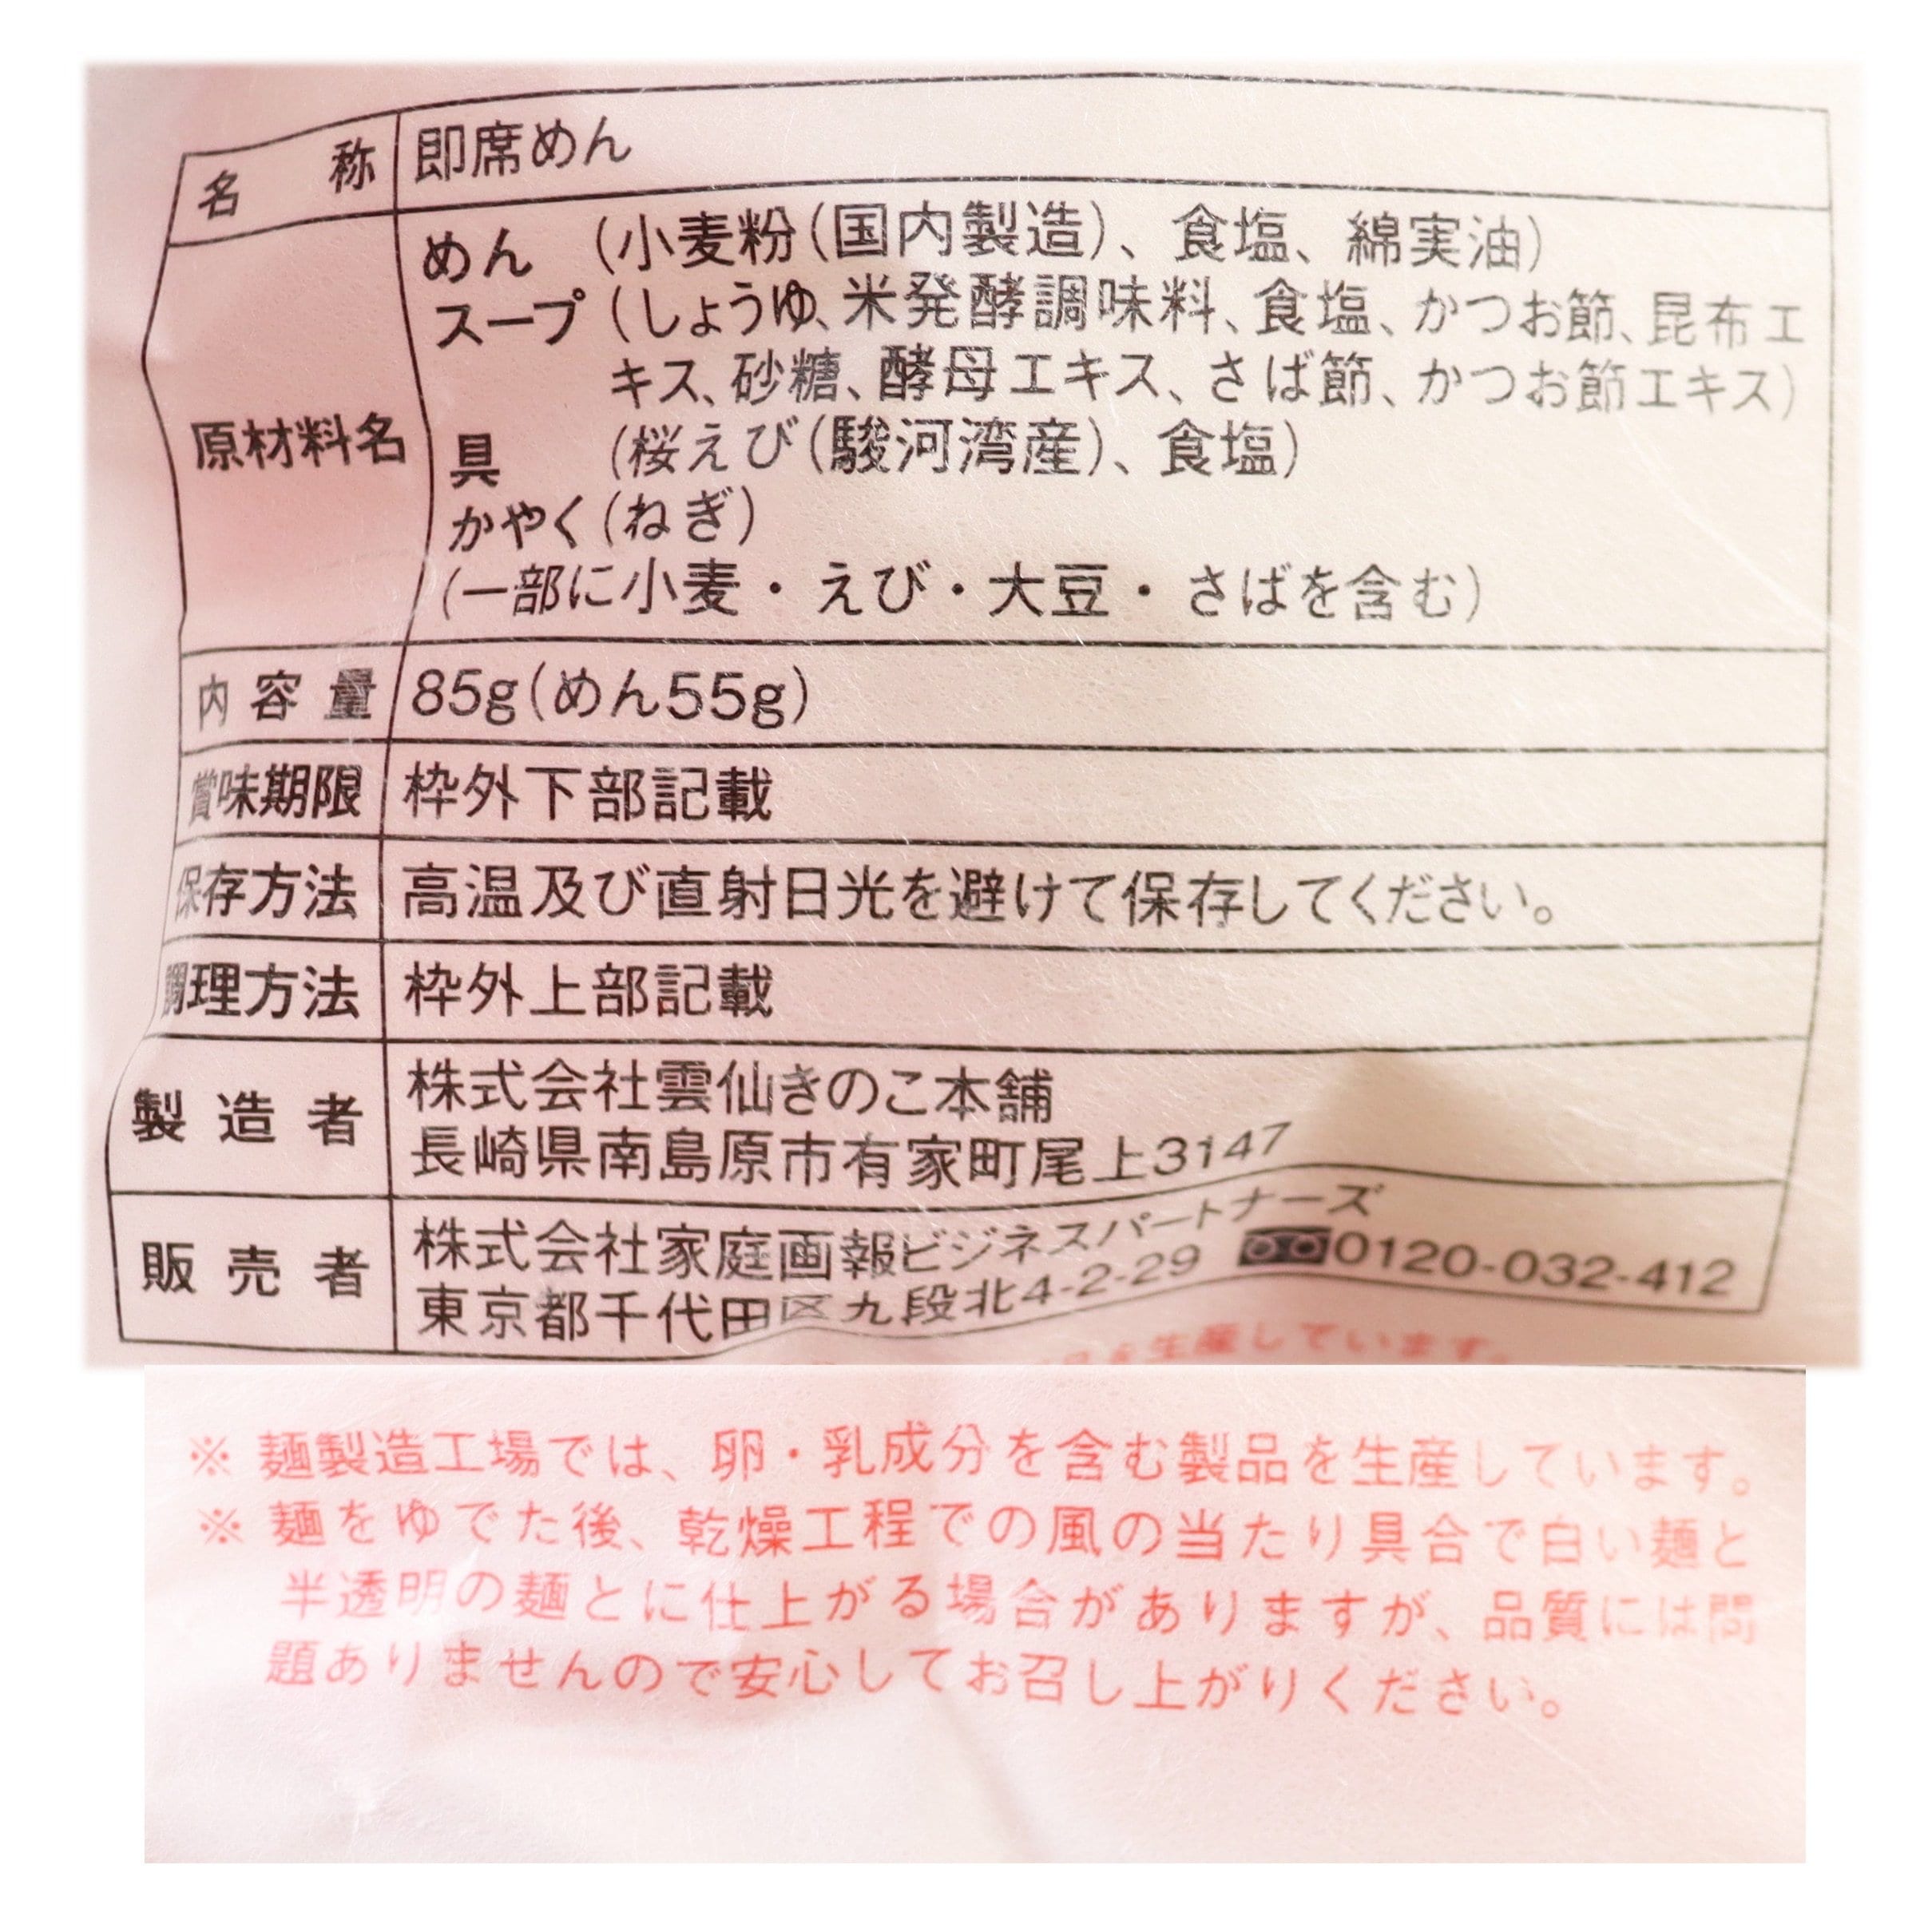 名称 即席めん
原材料名 めん (小麦粉(国内製造)、食塩、綿実油)
スープ (しょうゆ、米発酵調味料、食塩、かつお節、昆布エ
キス、砂糖、酵母エキス、さば節、かつお節エキス)
具 (桜えび(駿河湾産)、食塩)
かやく (ねぎ)
(一部に小麦・えび・大豆・さばを含む)
内容量 85g(めん55g)
賞味期限 枠外下部記載
保存方法 高温及び直射日光を避けて保存してください。
調理方法 枠外上部記載
製造者 株式会社雲仙きのこ本舗
長崎県南島原市有家町尾上3147
販売者 株式会社家庭画報ビジネスパートナーズ
東京都千代田区九段北4-2-29 0120-032-412
を生産しています。
※麺製造工場では、卵・乳成分を含む製品を生産しています。
※麺をゆでた後、乾燥工程での風の当たり具合で白い麺と
半透明の麺とに仕上がる場合がありますが、品質には問
題ありませんので安心してお召し上がりください。